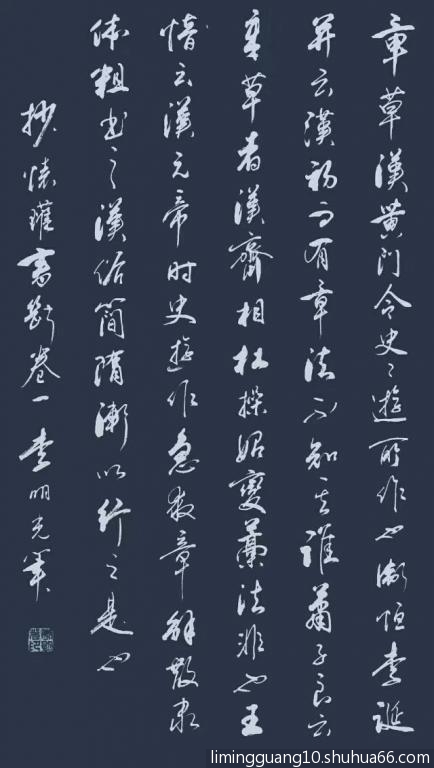 章草漢黄门令史〻遊所作也衛恒李誕
并云漢初而有章法不知其誰蕭子良云
章草者漢齊相杜操始變藁法非也王
愔云漢元帝时史遊作急就章解散隶
体粗书之漢俗簡隋漸以行之是也
抄懷瓘書斷卷一李明光
limingguang10.shuhua66.com